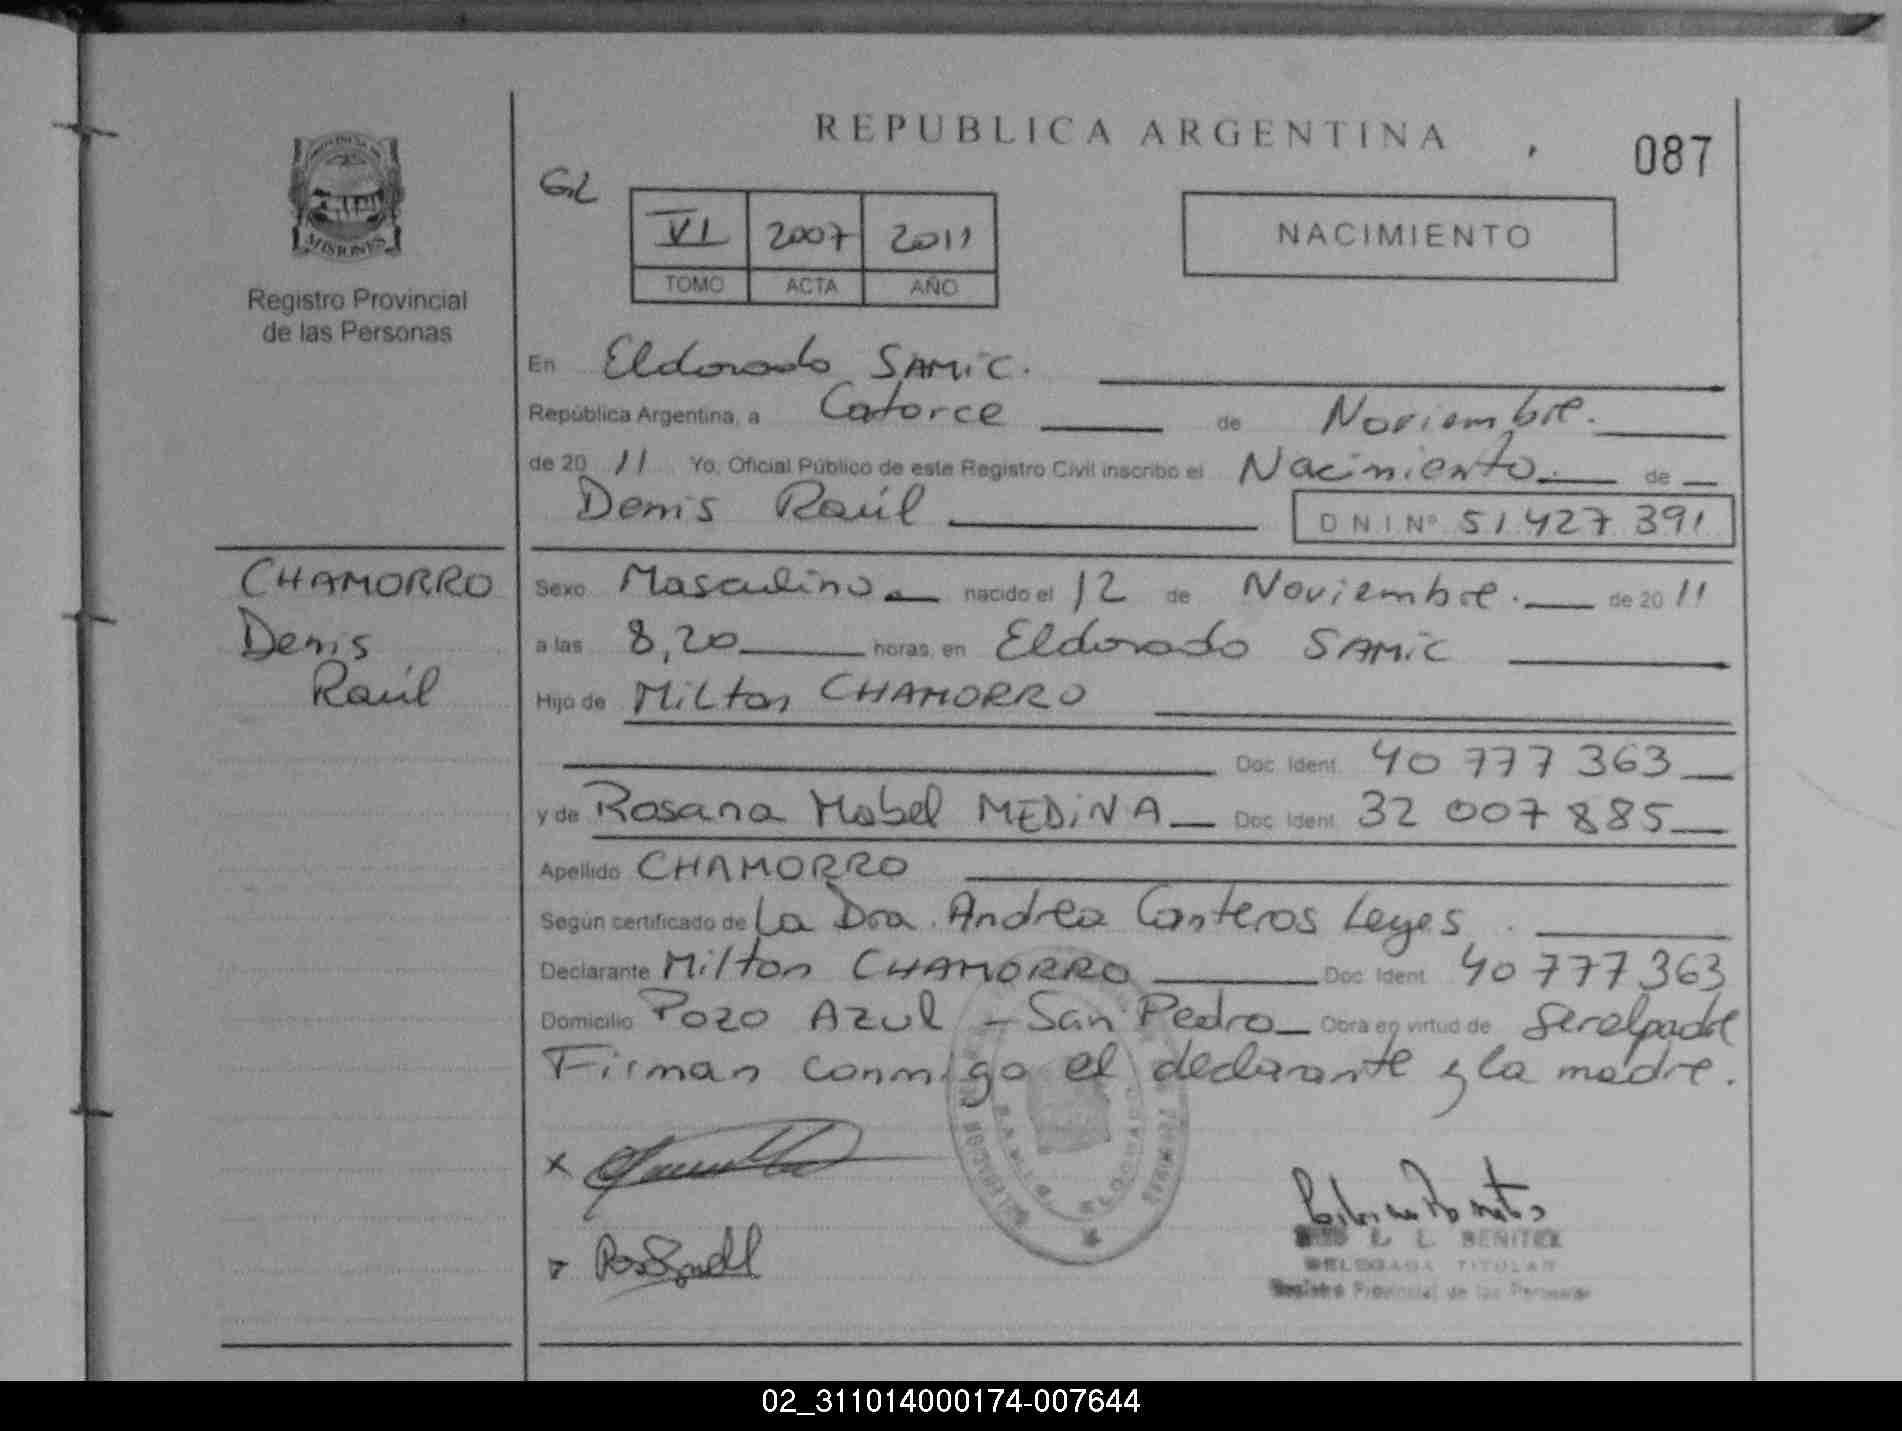 REPUBLICA ARGENTINA
087
MISIONES
Registro Provincial
de las Personas
GL
VI 2007 2011
TOMO ACTA AÑO
NACIMIENTO
En Eldorado SAMIC.
República Argentina, a Catorce de Noviembre.
de 20 11 Yo, Oficial Público de este Registro Civil inscribo el Nacimiento. de
Denis Raúl DNI Nº 51 427 391
CHAMORRO
Denis
Raúl
Sexo Masculino nacido el 12 de Noviembre. de 20 11
a las 8,20 horas, en Eldorado SAMIC
Hijo de Milton CHAMORRO
Doc. Ident. 40 777 363
y de Rosana Mabel MEDINA Doc. Ident. 32 007 885
Apellido CHAMORRO
Según certificado de La Dra. Andrea Canteros Leyes
Declarante Milton CHAMORRO Doc. Ident. 40 777 363
Domicilio Pozo Azul - San Pedro Obra en virtud de Ser el padre
Firman conmigo el declarante y la madre.
L. L. BENITEZ
DELEGADA TITULAR
Registro Provincial de las Personas
02_311014000174-007644